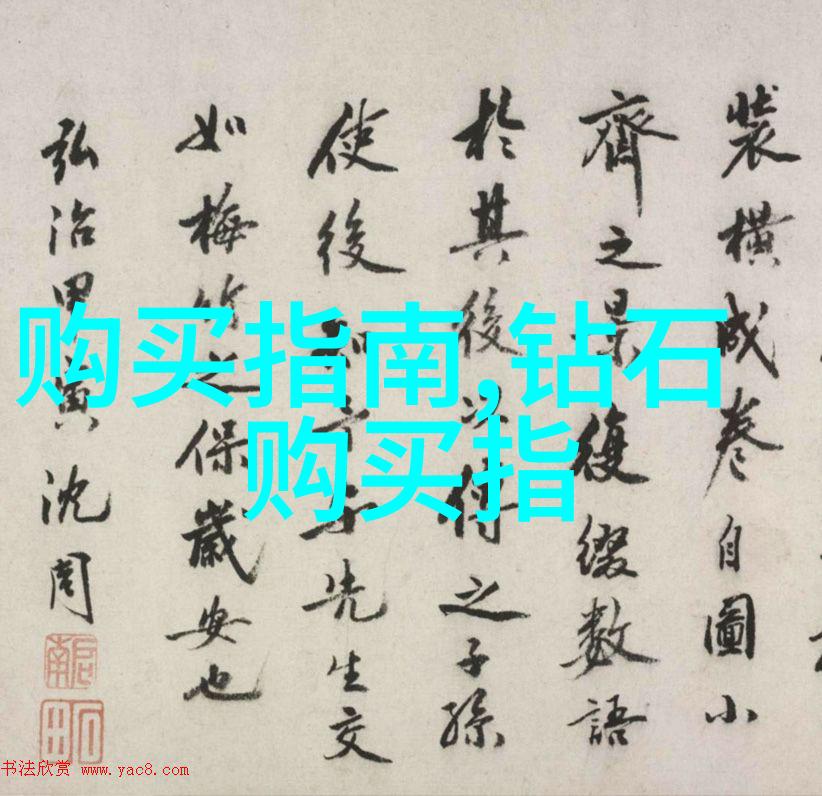 购买指南,钻石
购买指
裝橫成卷自圖小
齊之景復綴數語
於其後以傳之子孫
使後知予与先生交
如梅竹之保歲安也
弘治甲寅沈周
书法欣赏 www.yac8.com